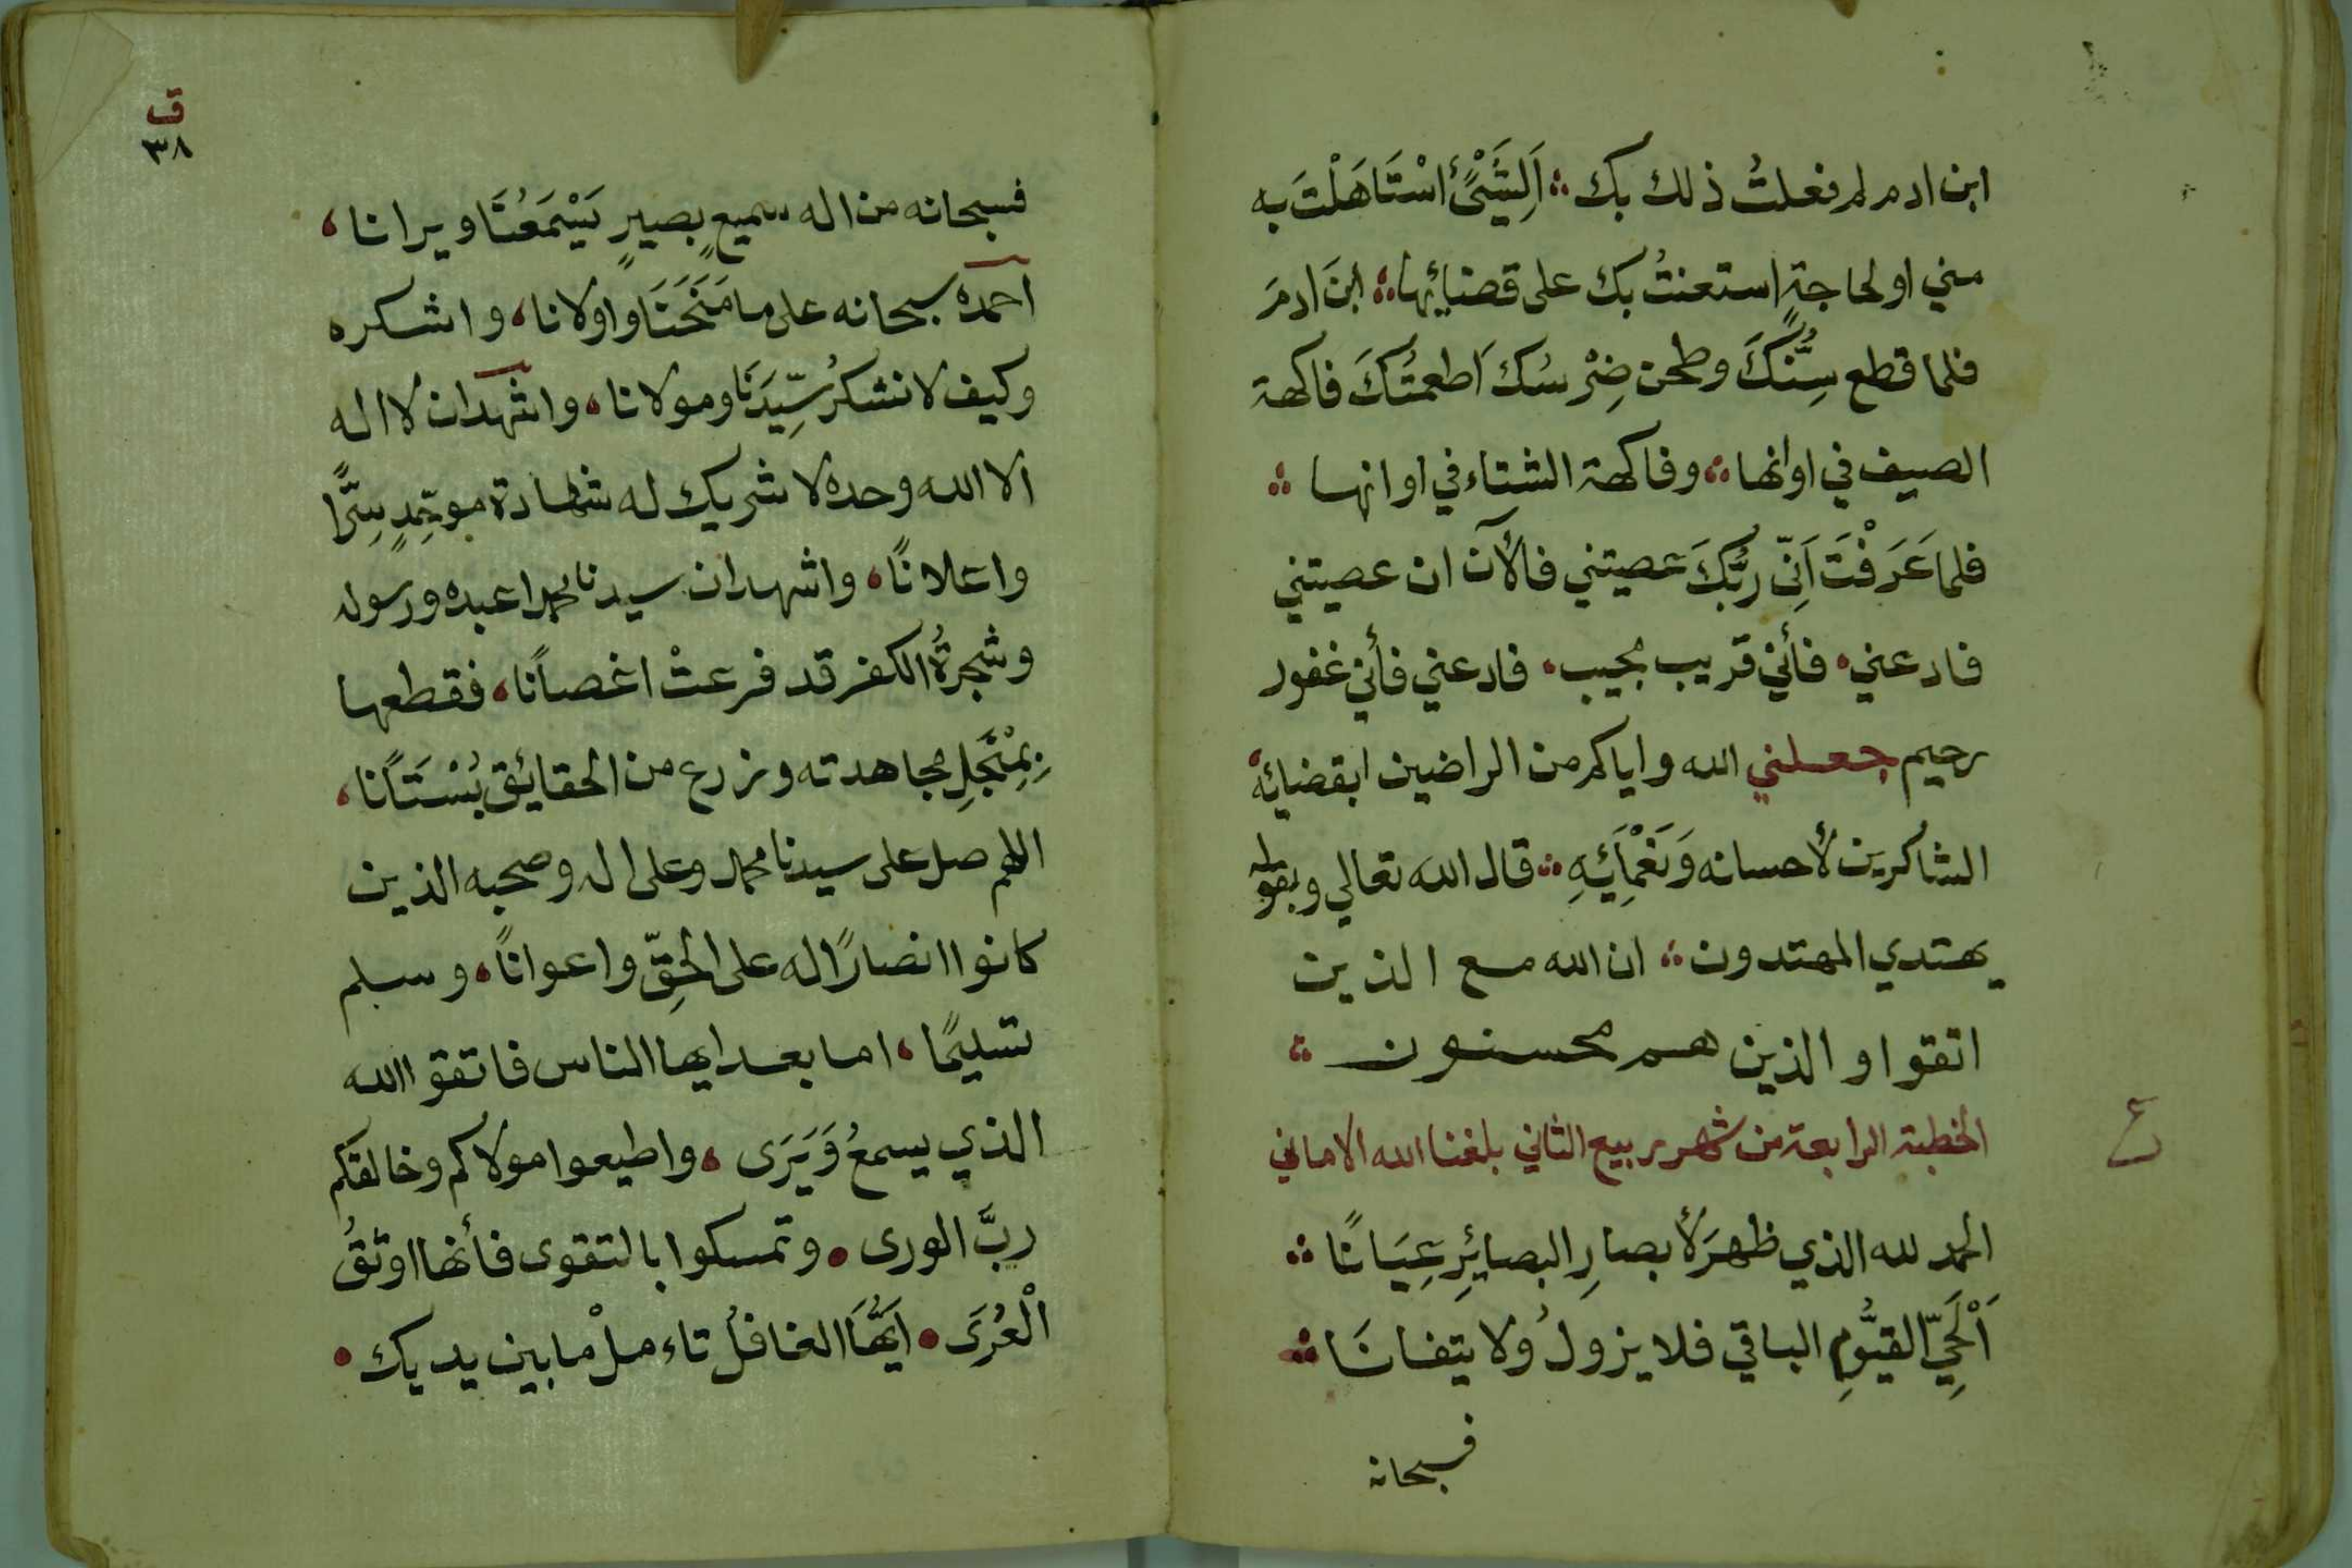 ابن ادم لم فعلتُ ذلك بك ؞ اَلِشَيْئٍ اسْتَاهَلْتَ به
مني او لحاجةٍ استعنتُ بك على قضائها ؞ ابنَ ادمَ
فلما قطع سِنُّكَ وطحن ضِرْسُك اَطعمتُكَ فاكهة
الصيف في اوانها ؞ وفاكهة الشتاء في اوانها ؞
فلما عَرَفْتَ اَنِّي رَبُّكَ عصيتني فالآن ان عصيتني
فادعني، فأني قريب مجيب، فادعني فأني غفور
رحيم جعلني الله واياكم من الراضين ابقضائه،
الشاكرين لأحسانه وَنَعْمَائِهِ ؞ قال الله تعالي وبقوله
يهتدي المهتدون ؞ ان الله مع الذين
اتقوا والذين هم محسنون ؞
ع
الخطبة الرابعة من شهر ربيع الثاني بلغنا الله الاماني
الحمد لله الذي ظهرَ لأبصارِ البصائِرِ عِيَانًا ؞
اَلْحَيِّ القيُّومِ الباقي فلا يزولُ ولا يتفانَا ؞
فسبحانه
ق
٣٨
فسبحانه من اله سميعٍ بصيرٍ يَسْمَعُنَا ويرانا،
احمده سبحانه على ما مَنَحَنَا واولانا، واشكره
وكيف لا نشكرُ سِيّدَنَا ومولانا، واشهد ان لا اله
الا الله وحده لا شريك له شهادة موحِّدٍ سِرًّا
واعلانًا، واشهد ان سيدنا محمدا عبده ورسوله
وشجرةُ الكفر قد فرعتْ اغصانًا، فقطعها
بِمِنْجَلِ مجاهدته وزرع من الحقائق بُسْتَانًا،
اللهم صل على سيدنا محمد وعلى اله وصحبه الذين
كانوا انصارًا له على الحقِّ واعوانًا، وسلم
تسليمًا، اما بعد ايها الناس فاتقوا الله
الذي يسمعُ وَيَرَى، واطيعوا مولاكم وخالقكم
ربَّ الورى • وتمسكوا بالتقوى فأنها اوثقُ
الْعُرَى • اَيُّهَا الغافلُ تاءملْ ما بين يديك •